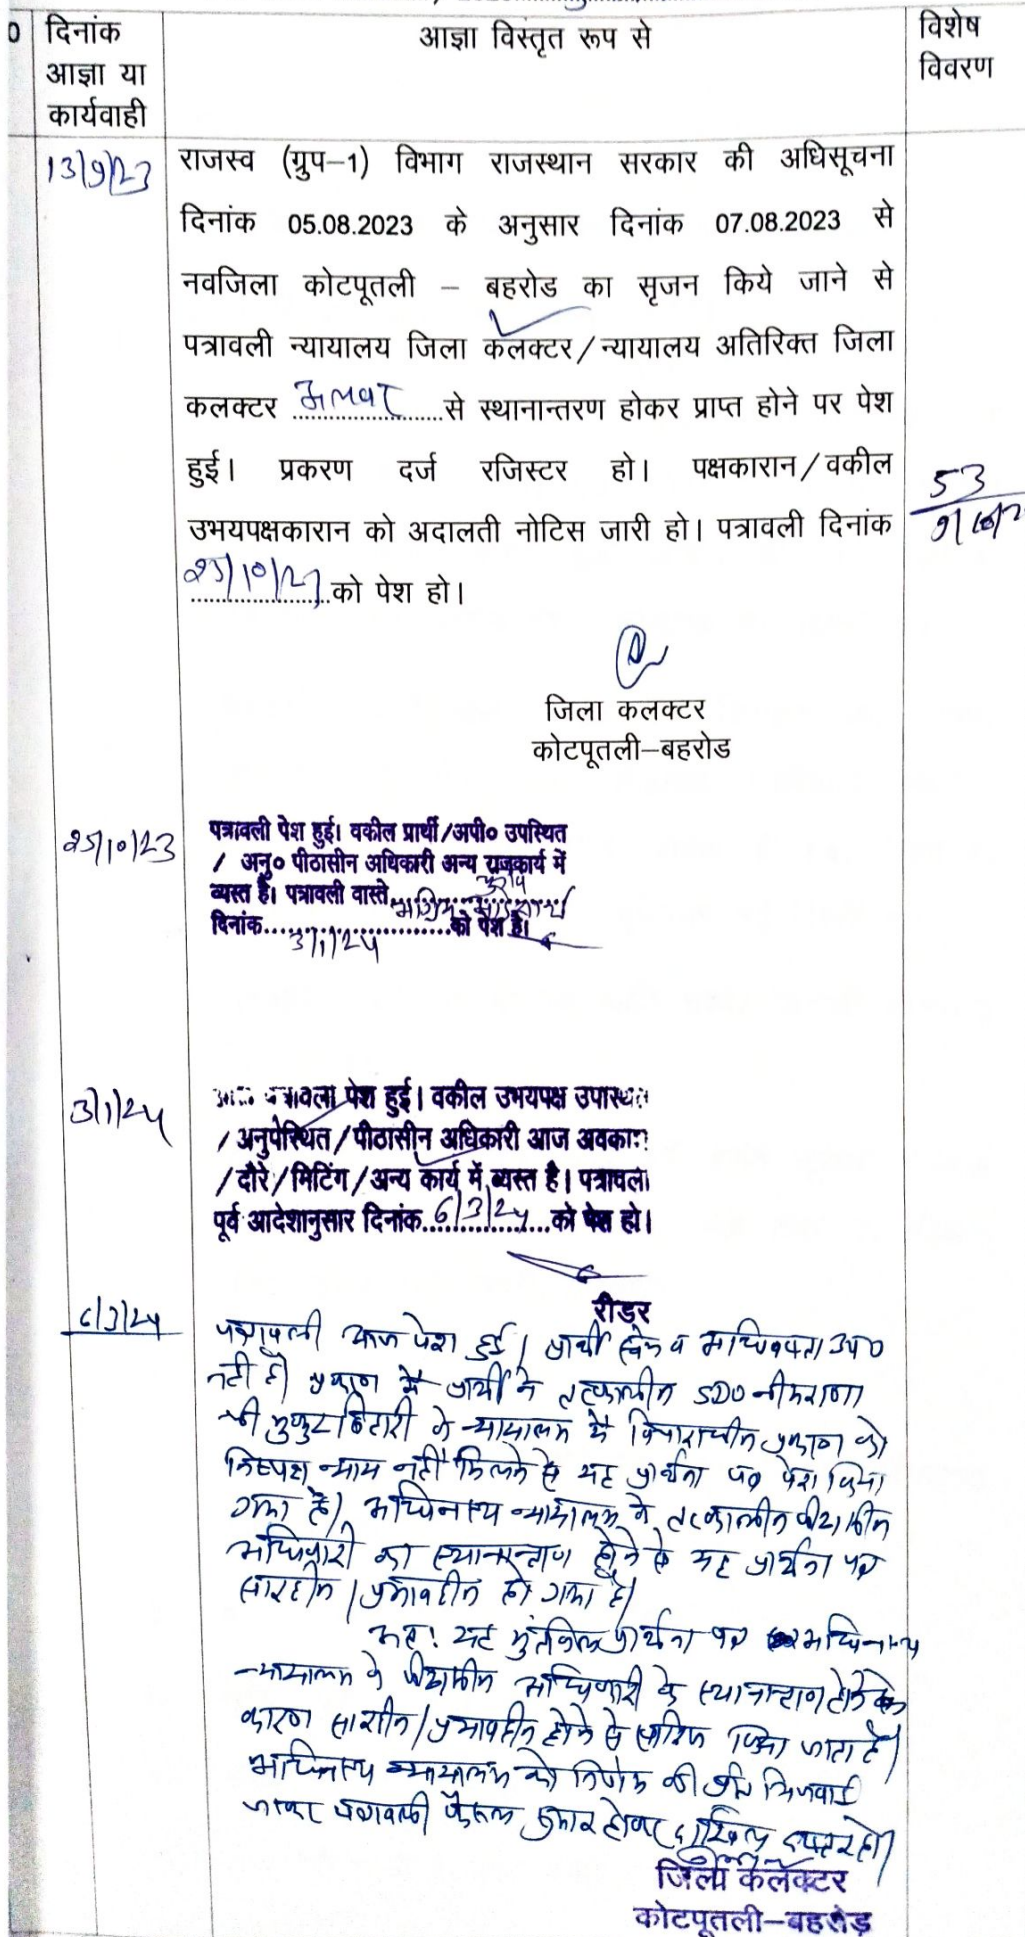 दिनांक
आज्ञा या
कार्यवाही
आज्ञा विस्तृत रूप से
विशेष
विवरण
13/9/23
राजस्व (ग्रुप–1) विभाग राजस्थान सरकार की अधिसूचना
दिनांक 05.08.2023 के अनुसार दिनांक 07.08.2023 से
नवजिला कोटपूतली – बहरोड का सृजन किये जाने से
पत्रावली न्यायालय जिला कलक्टर/न्यायालय अतिरिक्त जिला
कलक्टर अलवर से स्थानान्तरण होकर प्राप्त होने पर पेश
हुई। प्रकरण दर्ज रजिस्टर हो। पक्षकारान/वकील
उभयपक्षकारान को अदालती नोटिस जारी हो। पत्रावली दिनांक
25/10/23 को पेश हो।
53
जिला कलक्टर
कोटपूतली–बहरोड
25/10/23
पत्रावली पेश हुई। वकील प्रार्थी/अपी० उपस्थित
/ अनु० पीठासीन अधिकारी अन्य राजकार्य में
व्यस्त है। पत्रावली वास्ते
दिनांक 3/1/24 को पेश हो।
3/1/24
पेश हुई। वकील उभयपक्ष उपस्थित
/अनुपस्थित/पीठासीन अधिकारी आज अवकाश
/दौरे/मिटिंग/अन्य कार्य में व्यस्त है। पत्रावली
पूर्व आदेशानुसार दिनांक 6/3/24 को पेश हो।
रीडर
6/3/24
पत्रावली आज पेश हुई। प्रार्थी स्वयं व अधिवक्ता उप०
नहीं है। प्रकरण में प्रार्थी ने तत्कालीन SDO नीमराणा
श्री मुकुट बिहारी के न्यायालय में विचाराधीन प्रकरण को
निष्पक्ष न्याय नहीं मिलने से यह प्रार्थना पत्र पेश किया
गया है। अधिनस्थ न्यायालय के तत्कालीन पीठासीन
अधिकारी का स्थानान्तरण होने से यह प्रार्थना पत्र
सारहीन/प्रभावहीन हो गया है।
अतः यह मुंतकिल प्रार्थना पत्र अधिनस्थ
न्यायालय के पीठासीन अधिकारी के स्थानान्तरण होने के
कारण सारहीन/प्रभावहीन होने से खारिज किया जाता है।
अधिनस्थ न्यायालय को निर्णय की प्रति भिजवाई
जाकर पत्रावली फैसल शुमार होकर दाखिल दफ्तर हो।
जिला कलक्टर
कोटपूतली–बहरोड़